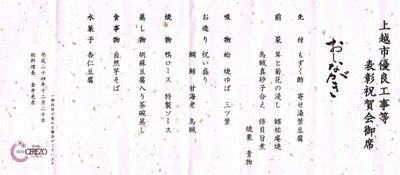 上越市優良工事等
表彰祝賀会御席
おしながき
先付 もずく酢 寄せ湯葉豆腐
前菜 茸と菊花の浸し 螺祐庵焼
烏賊真砂子合え 倍貝旨煮
焼栗 青物
吸物 蛤 焼ゆば 三ツ葉
お造り 祝い盛り
鯛 鮪 甘海老 烏賊
焼物 鴨ロース 特製ソース
蒸し物 胡麻豆腐入り茶碗蒸し
食事物 自然芋そば
水菓子 杏仁豆腐
平成二十四年十二月二十日
総料理長 金井光彦
CEREZO